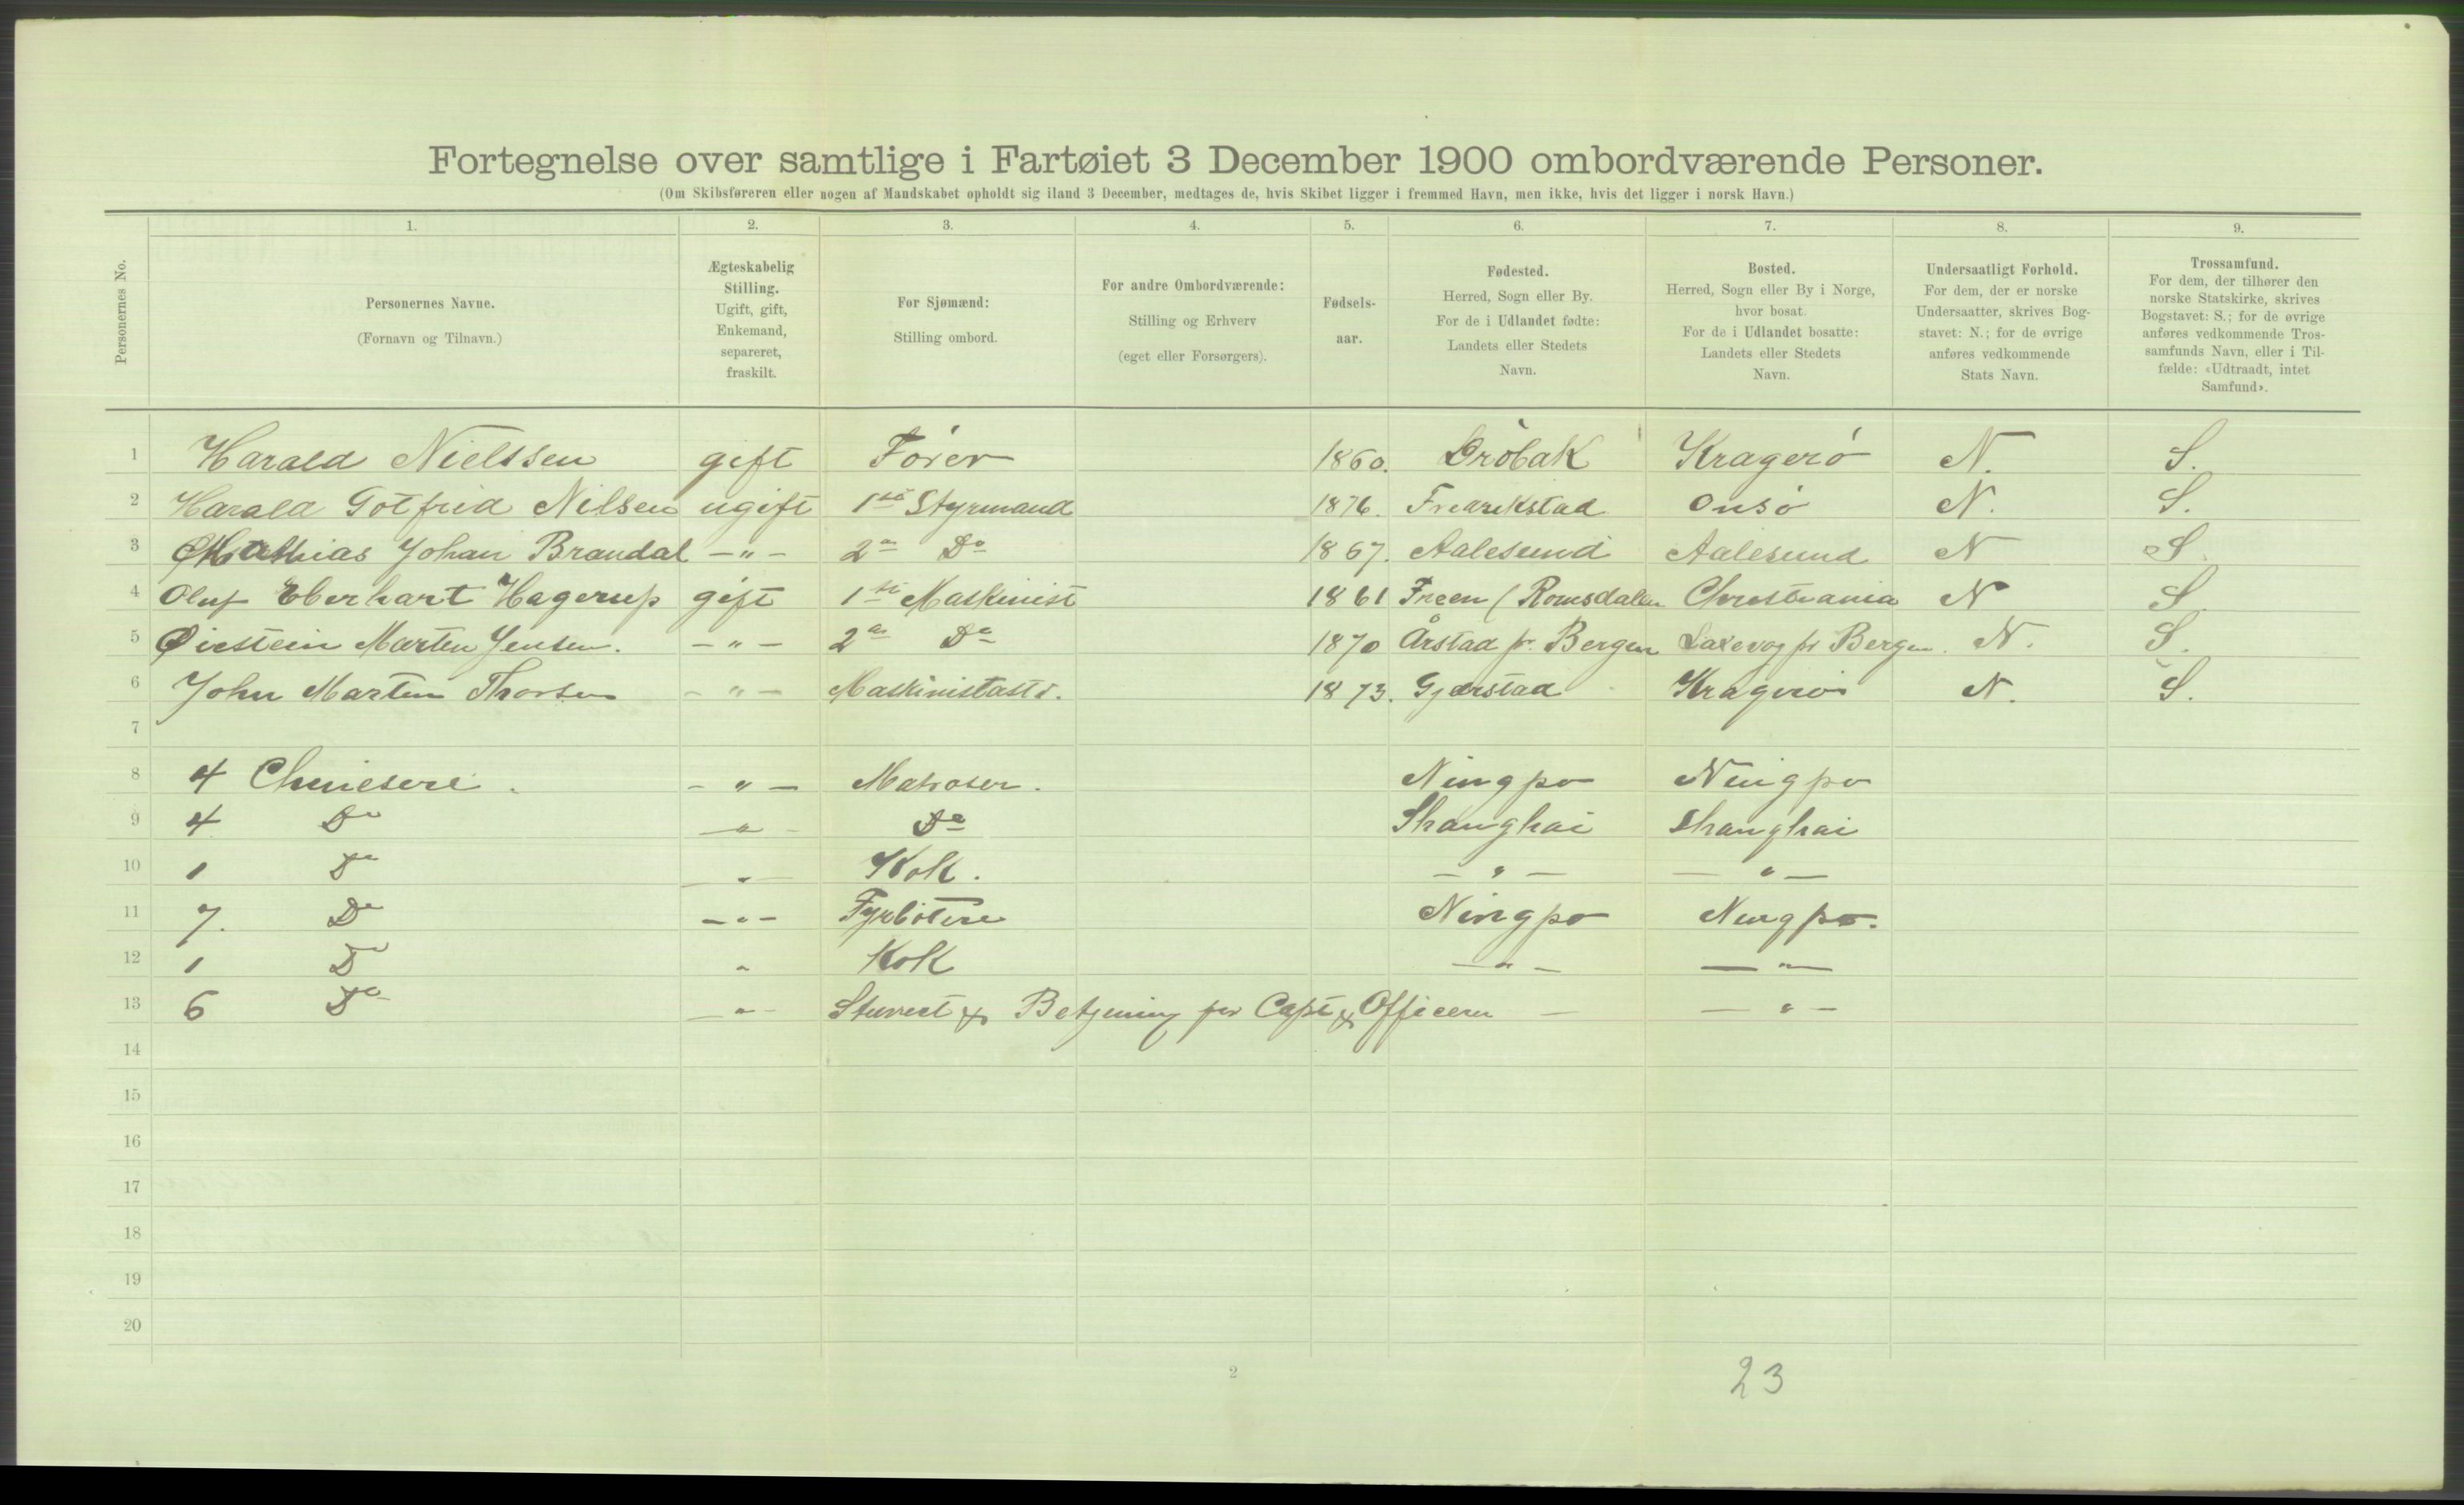 Fortegnelse over samtlige i Fartøiet 3 December 1900 ombordværende Personer.
(Om Skibsføreren eller nogen af Mandskabet opholdt sig iland 3 December, medtages de, hvis Skibet ligger i fremmed Havn, men ikke, hvis det ligger i norsk Havn.)
Personernes No.
1. 2. 3. 4. 5. 6. 7. 8. 9.
Personernes Navne.
(Fornavn og Tilnavn.)
Ægteskabelig
Stilling.
Ugift, gift,
Enkemand,
separeret,
fraskilt.
For Sjømænd:
Stilling ombord.
For andre Ombordværende:
Stilling og Erhverv
(eget eller Forsørgers).
Fødsels-
aar.
Fødested.
Herred, Sogn eller By.
For de i Udlandet fødte:
Landets eller Stedets
Navn.
Bosted.
Herred, Sogn eller By i Norge,
hvor bosat.
For de i Udlandet bosatte:
Landets eller Stedets
Navn.
Undersaatligt Forhold.
For dem, der er norske
Undersaatter, skrives Bog-
stavet: N.; for de øvrige
anføres vedkommende
Stats Navn.
Trossamfund.
For dem, der tilhører den
norske Statskirke, skrives
Bogstavet: S.; for de øvrige
anføres vedkommende Tros-
samfunds Navn, eller i Til-
fælde: «Udtraadt, intet
Samfund».
1 Harald Nielssen gift Fører 1860. Drøbak Kragerø N. S.
2 Harald Gotfrid Nilsen ugift 1ste Styrmand 1876. Fredrikstad Onsø N. S.
3 Mathias Johan Brandal — " — 2en Do 1867. Aalesund Aalesund N S.
4 Oluf Eberhart Hagerup gift 1ste Maskinist 1861 Freen (Romsdalen Christiania N S.
5 Øistein Marten Jensen. — " — 2en Do 1870 Årstad pr. Bergen Laxevog pr Bergen. N. S.
6 John Marten Thorsen — " — Maskinistasts. 1873. Gjerstad Kragerø N. S.
7
8 4 Chinesere. — " — Matroser. Ningpo Ningpo
9 4 Do — " — Do Shanghai Shanghai
10 1 Do — " — Kok. — " — — " —
11 7. Do — " — Fyrbötere Ningpo Ningpo.
12 1 Do " Kok — " — — " —
13 6 Do — " — Stuvert & Betjening for Capt & Officerer — — " —
14
15
16
17
18
19
20
2
23